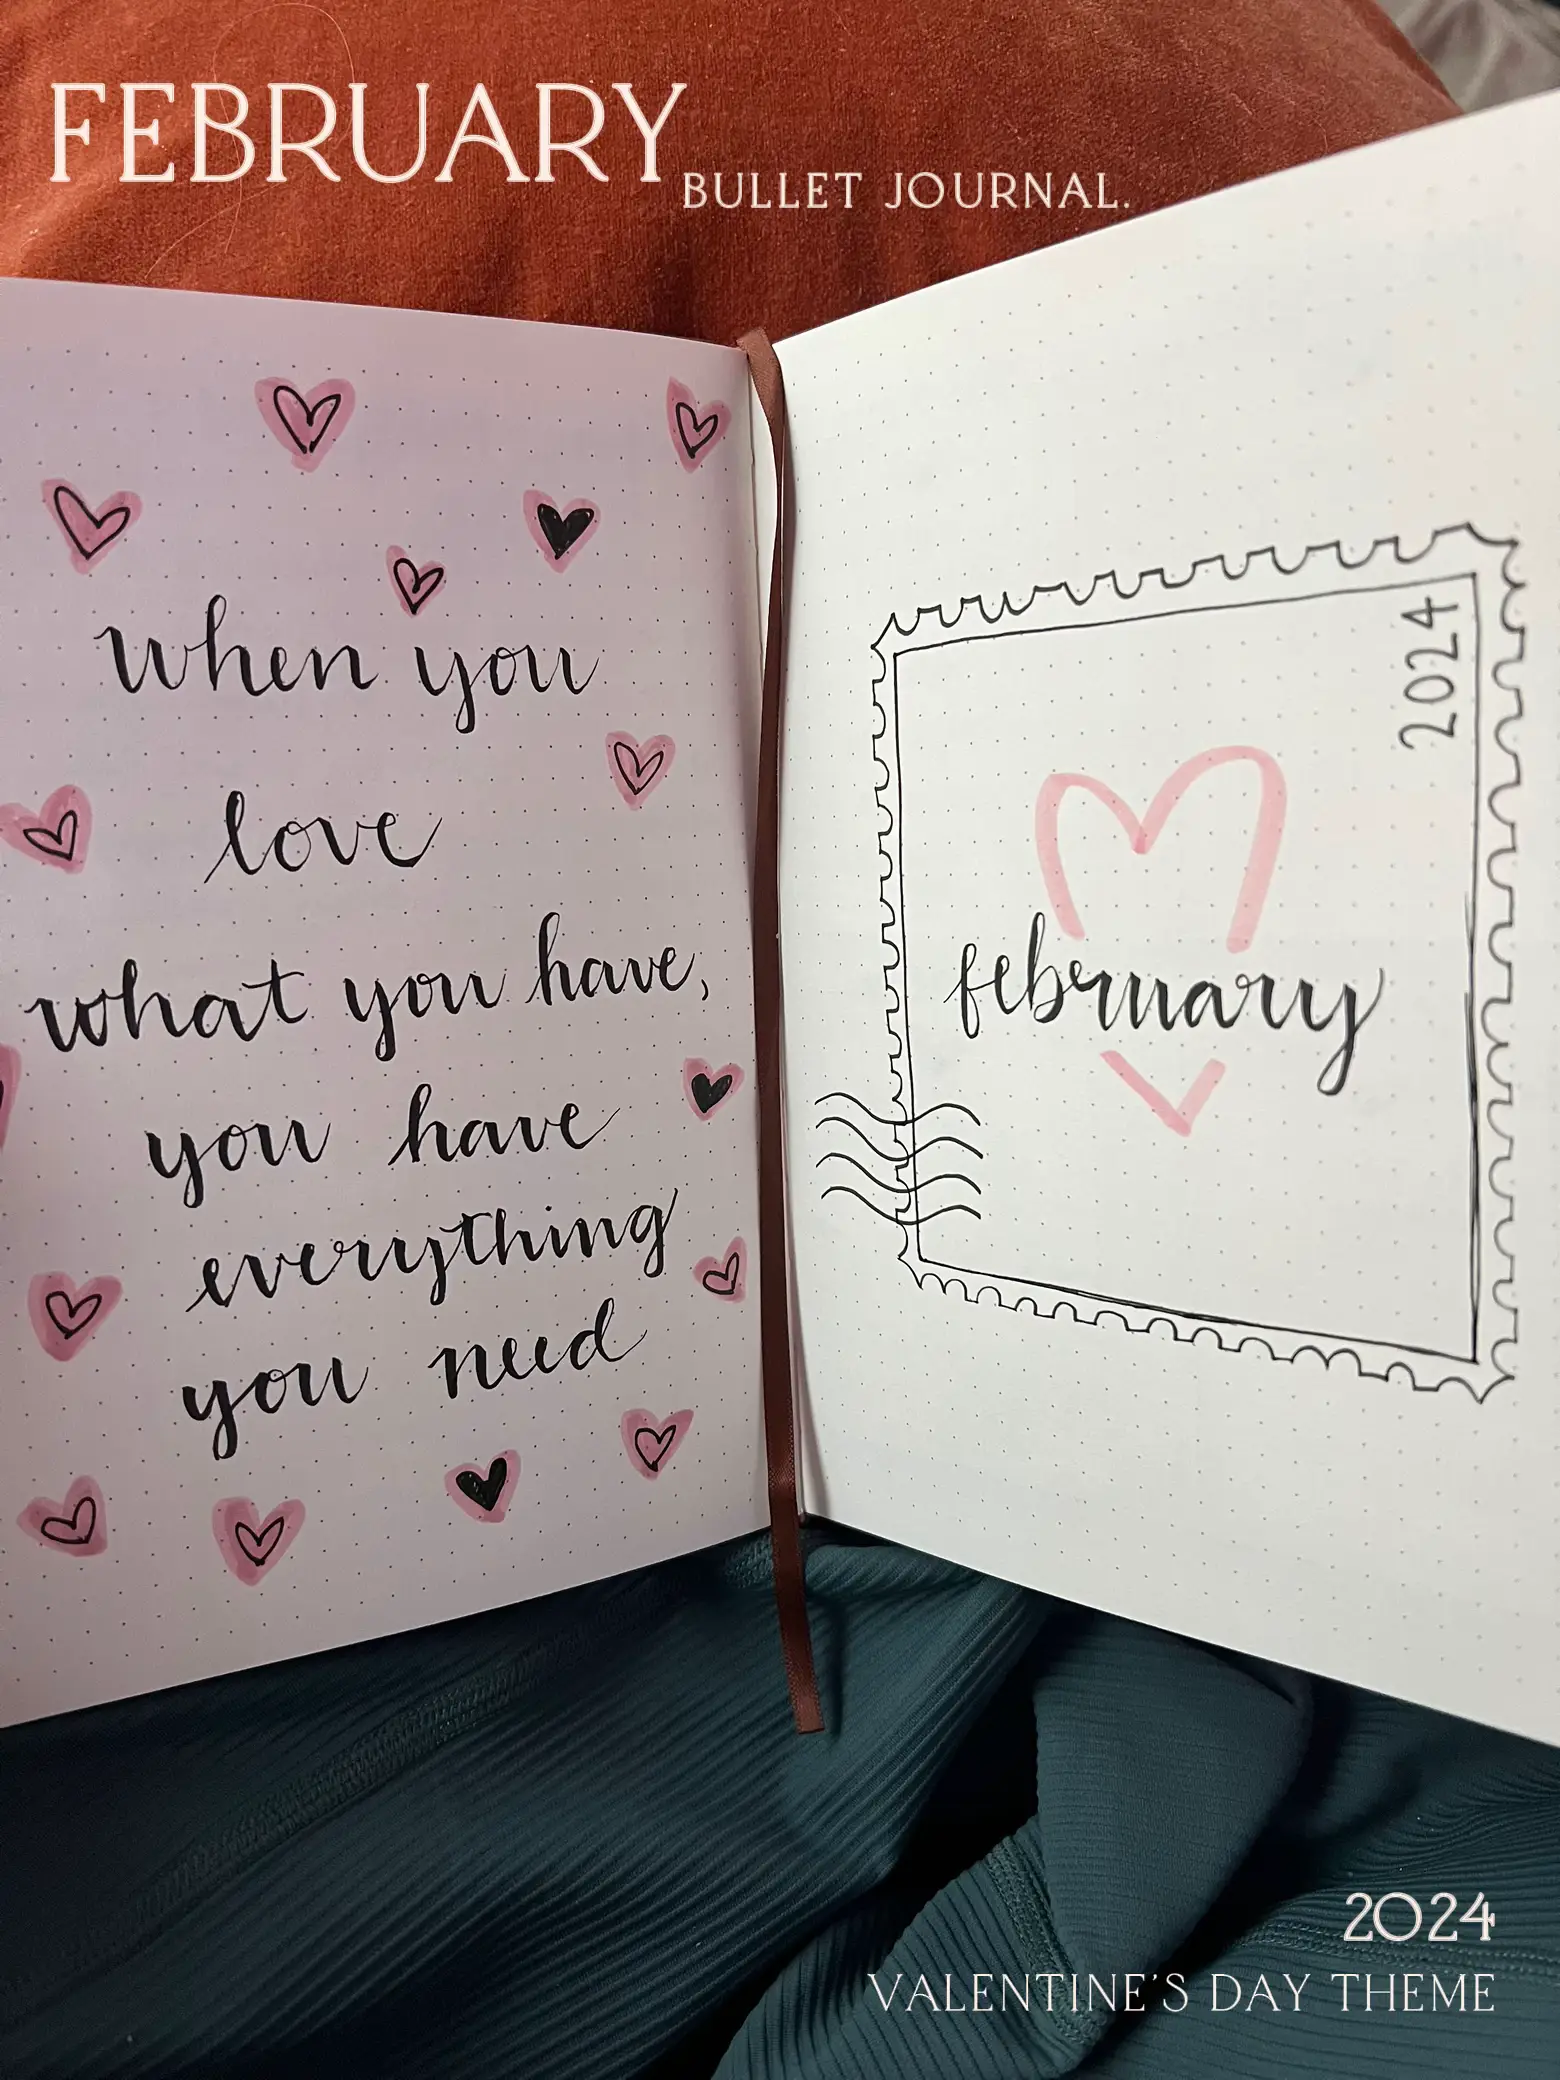 FEBRUARY
BULLET JOURNAL.
when you
love
what you have,
you have
everything
you need
2024
february
2024
VALENTINE'S DAY THEME